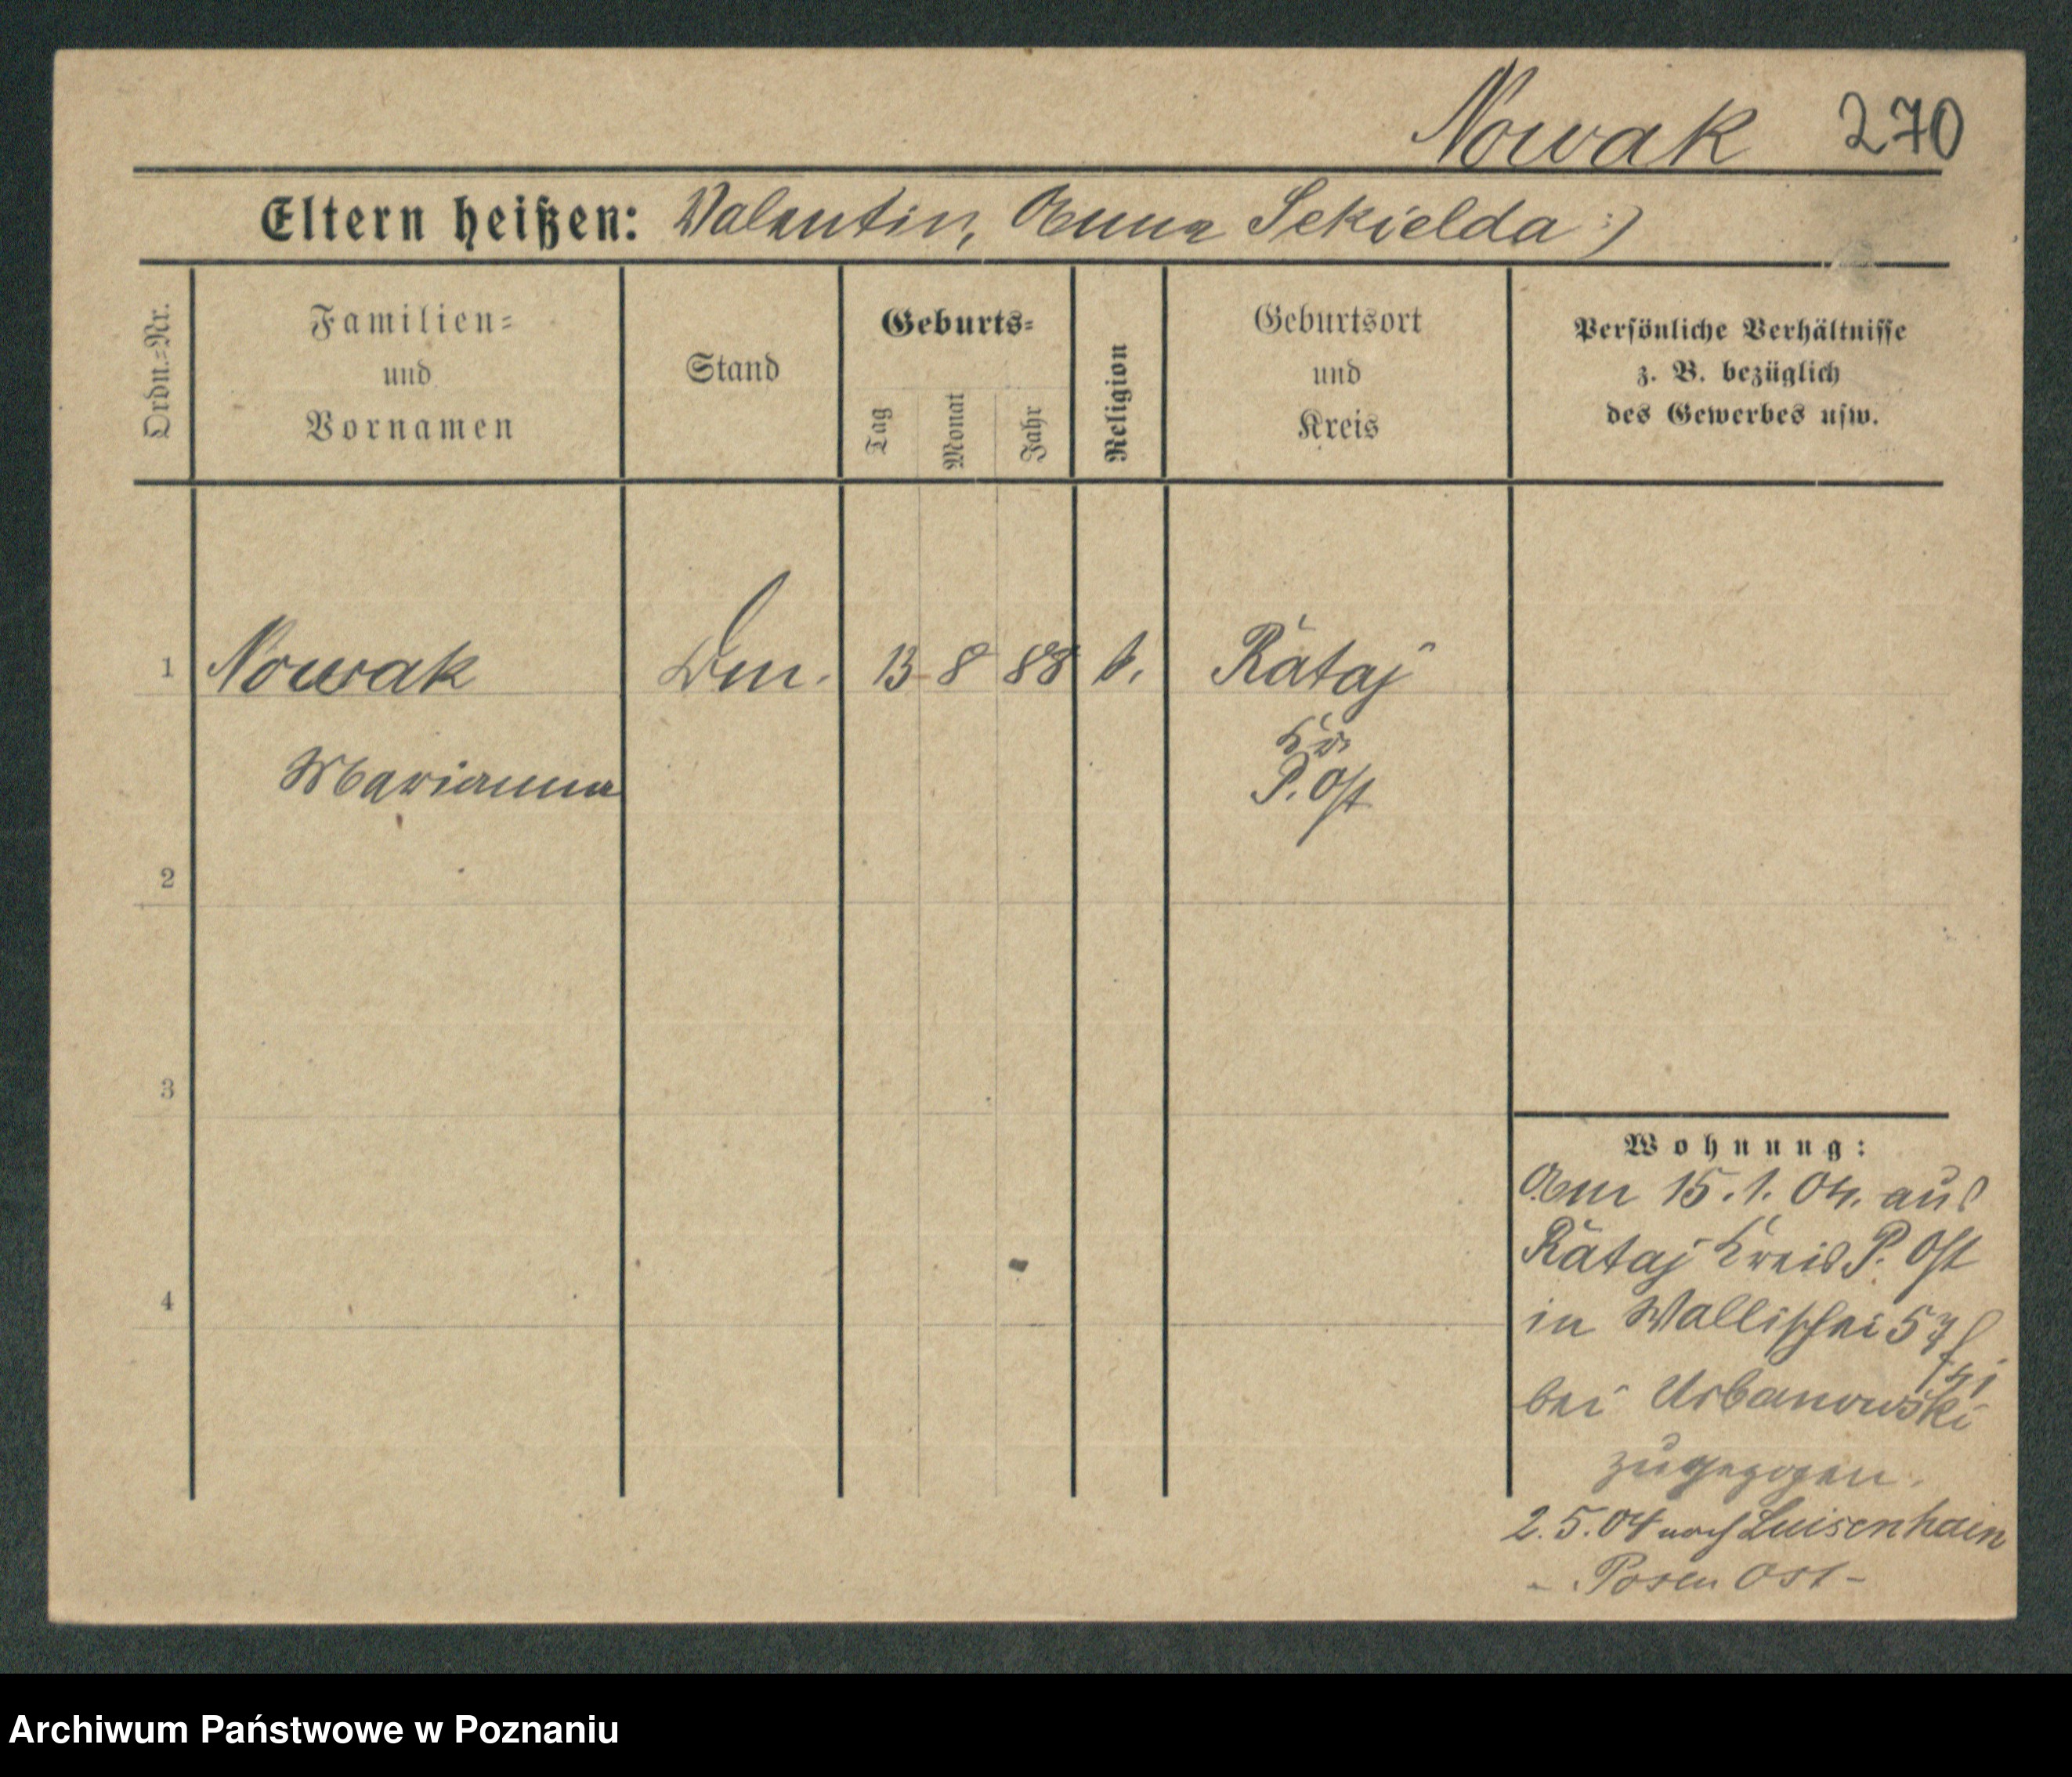 Nowak 270
Eltern heißen: Valentin, Anna Sekielda :)
Ordn.=Nr.
Familien=
und
Vornamen
Stand
Geburts=
Tag
Monat
Jahr
Religion
Geburtsort
und
Kreis
Persönliche Verhältnisse
z. B. bezüglich
des Gewerbes usw.
1 Nowak 13 8 88 k. Rataj
Kr.
Marianna P. Ost
2
3
4
Wohnung:
Am 15.1.04. aus
Rataj Kreis P. Ost
in Wallischei 57
bei Urbanowski
zugezogen.
2.5.04 nach Luisenhain
- Posen Ost -
Archiwum Państwowe w Poznaniu